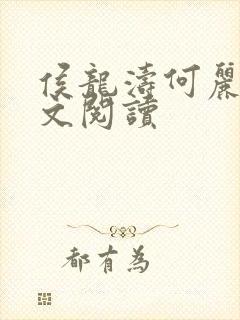 侯龍濤何麗
文閱讀
都有為